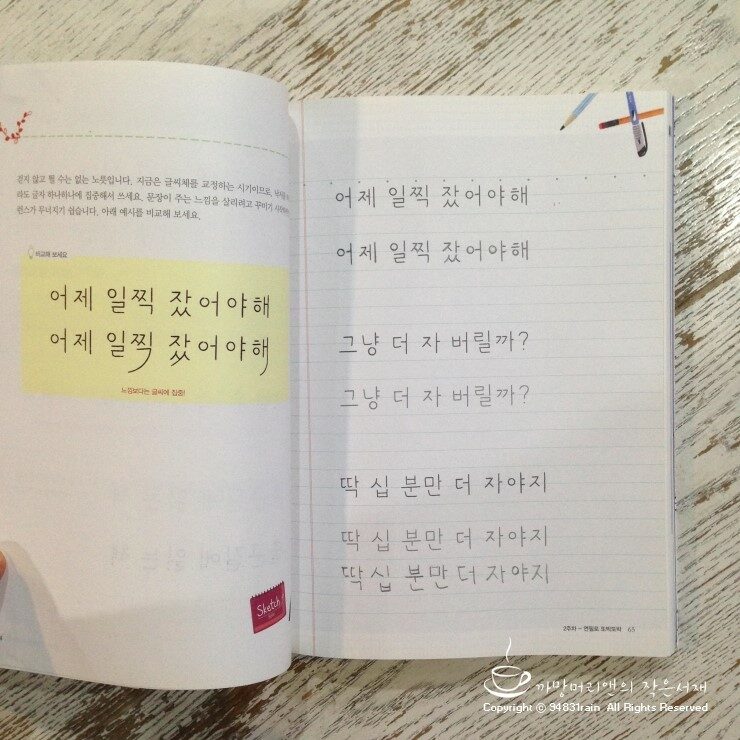 걷지 않고 뛸 수는 없는 노릇입니다. 지금은 글씨체를 교정하는 시기이므로,
라도 글자 하나하나에 집중해서 쓰세요. 문장이 주는 느낌을 살리려고 꾸미기
런스가 무너지기 쉽습니다. 아래 예시를 비교해 보세요.
비교해 보세요
어제 일찍 잤어야해
어제 일찍 잤어야해
느낌보다는 글씨에 집중!
Sketch
어제 일찍 잤어야해
어제 일찍 잤어야해
그냥 더 자 버릴까?
그냥 더 자 버릴까?
딱 십 분만 더 자야지
딱 십 분만 더 자야지
딱 십 분만 더 자야지
2주차 – 연필로 또박또박 65
까망머리앤의 작은서재
Copyright © 94831rain All Rights Reserved